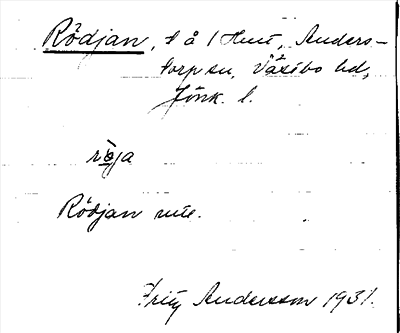 Rödjan, t å 1 Hmt, Anders-
torp sn, Västbo hd,
Jönk. l.
röja
Rödjan mte.
Fritz Andersson 1931.